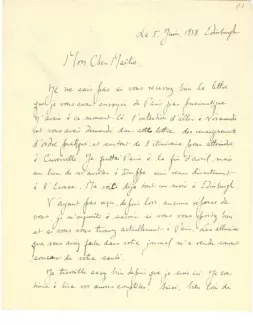 Le 5. Juin, 1938 Edinburgh
Mon Cher Maître,
Je ne sais pas si vous recevrez bien la lettre
que je vous avais envoyée de Paris par pneumatique
J'avais à ce moment là l'intention d'aller à Normandie
et vous avais demandé dans cette lettre des renseignements
d'ordre pratique et surtout de l'itinéraire pour atteindre
à Je quittai Paris à la fin d'avril, mais
au lieu de m'arrêter à Dieppe suis venu directement
à l'Ecosse. Me voilà déjà tout un mois à Edinburgh
N'ayant pas reçu, depuis lors aucune réponse de
vous, je m'inquiète à savoir si vous vous portez bien
et si vous vous trouvez actuellement à Paris. Les allusions
que vous avez faites dans votre journal m'a rendu souvent
soucieux de votre santé.
Je travaille assez bien depuis que je suis ici. Je con-
tinue à lire vos œuvres complètes. Aussi, bien loin de